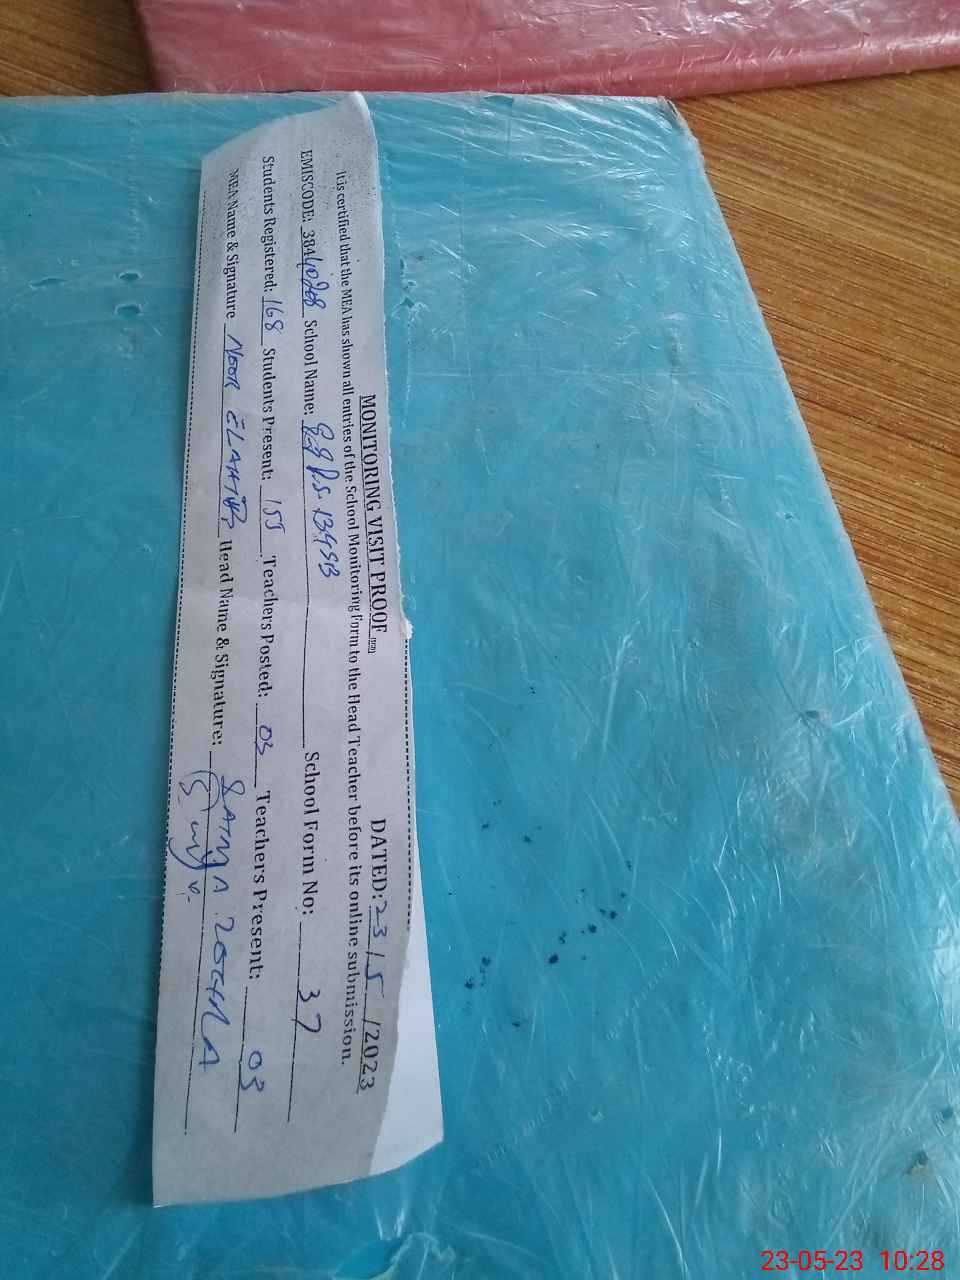 MONITORING VISIT PROOF DATED: 23/5/2023
It is certified that the MEA has shown all entries of the School Monitoring Form to the Head Teacher before its online submission.
EMISCODE: 38440268 School Name: GGPS 134SB School Form No: 37
Students Registered: 168 Students Present: 155 Teachers Posted: 03 Teachers Present: 03
MEA Name & Signature NOOR ELAHI Head Name & Signature:
23-05-23 10:28